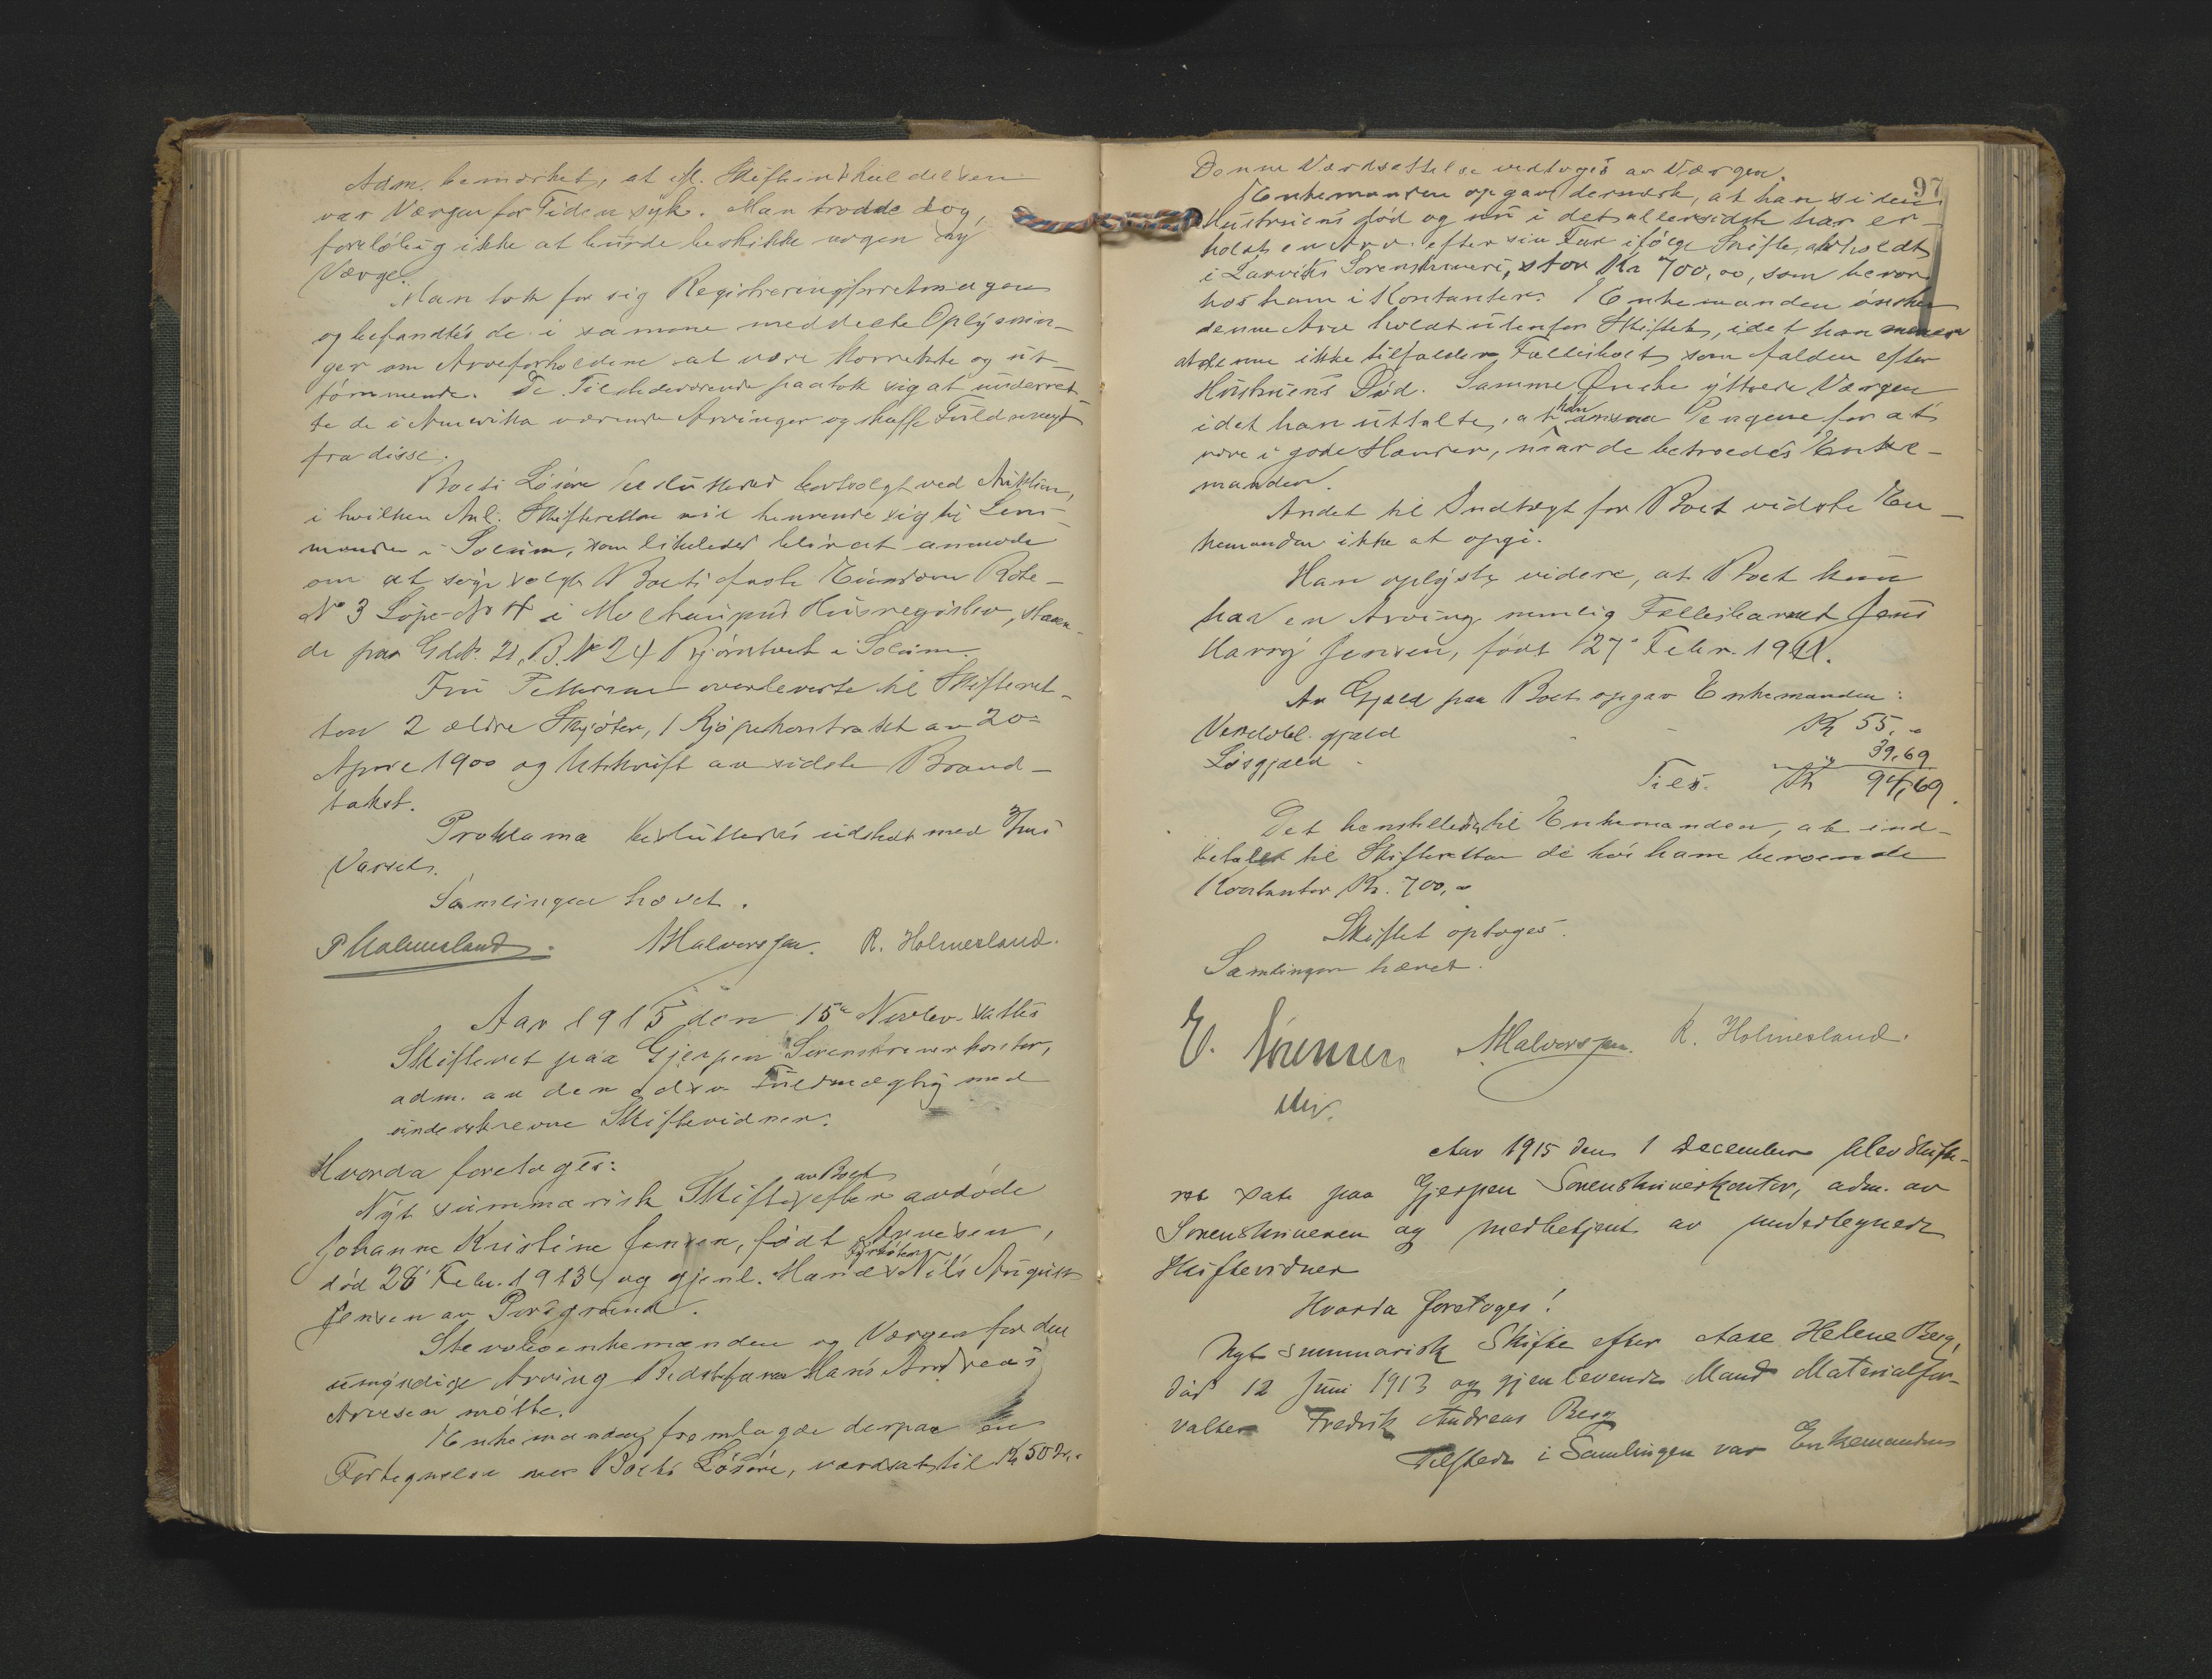 Adm. bemærket, at efl. Skifteindkaldelsen
var Værgen for Tiden syk. Man trodde dog,
foreløbig ikke at burde beskikke nogen ny
Værge.
Man tok for sig Registreringsforretningen
og befandtes de i samme meddelte Oplysnin-
ger om Arveforholdene at være korrekte og ut-
tømmende. De Tilstedeværende paatok sig at underret-
te de i Amerika værende Arvinger og skaffe Fuldmagt
fra disse.
Boets Løsøre besluttedes bortsolgt ved Auktion,
i hvilken Anl. Skifteretten vil henvende sig til Lens-
manden i Solum, som likeledes blir at anmode
om at søge solgt Boets faste Eiendom Rode-
No 3 Løpe-No 4 i Husregister, staaen-
de paa Gdb. 21, B.No 24 Bjørntvet i Solum.
Fru Pettersen overleverte til Skifteret-
ten 2 ældre Skjøter, 1 Kjøpekontrakt av 20
April 1900 og Utskrift av sidste Brand-
takst.
Proklama besluttedes utstedt med 3 Mds
Varsel.
Samlingen hævet.
P Holmesland. Halvorsen. R. Holmesland.
Aar 1915 den 15de Novbr. sattes
Skifteret paa Gjerpen Sorenskriverkontor,
adm. av den edsv. Fuldmægtig med
underskrevne Skiftevidner.
Hvorda foretoges:
Nyt summarisk Skifte av Boet efter avdøde
Johanne Kristine Jensen, født Arvesen,
død 28 Febr. 1913 og gjenl. Mand Fyrbøter Nils August
Jensen av Porsgrund.
Stervboenkemanden og Værgen for den
umyndige Arving Bedstefaren Hans Andreas
Arvesen møtte.
Enkemanden fremlagde derpaa en
Fortegnelse over Boets Løsøre, værdsat til Kr 50
97
Denne Værdsættelse vedtoges av Værgen.
Enkemanden opgav dernæst, at han siden
Hustruens Død og nu i det allersidste har er-
holdt en Arv efter sin Far ifølge Skifte, avholdt
i Larviks Sorenskriveri, stor Kr 700,00, som beror
hos ham i Kontanter. Enkemanden ønsker
denne Arv holdt utenfor Skiftet, idet han mener
at denne ikke tilfalder Fællesboet som falden efter
Hustruens Død. Samme Ønske yttrede Værgen
idet han uttalte, at han ansaa Pengene for at
være i gode Hænder, naar de betroedes Enke-
manden.
Andet til Indtægt for Boet vidste En-
kemanden ikke at opgi.
Han oplyste videre, at Boet kun
har en Arving nemlig Fællesbarnet Jens
Harry Jensen, født 27 Febr. 1911.
Av Gjæld paa Boet opgav Enkemanden:
Vexelobl. gjæld - - Kr 55,00
Løsgjæld - - " 39,69
Tils. Kr 94,69.
Det henstilledes til Enkemanden, at ind-
betale til Skifteretten de hos ham beroende
Kontanter Kr. 700,00
Skiftet optoges.
Samlingen hævet.
E. Sörensen Halvorsen. R. Holmesland.
Aar 1915 den 1 December blev Skifte-
ret sat paa Gjerpen Sorenskriverkontor, adm. av
Sorenskriveren og medbetjent av undertegnede
Skiftevidner
Hvorda foretoges!
Nyt summarisk Skifte efter Aase Helene Berg,
død 12 Juni 1913 og gjenlevende Mand Materialfor-
valter Fredrik Andreas Berg
Tilstede i Samlingen var Enkemanden